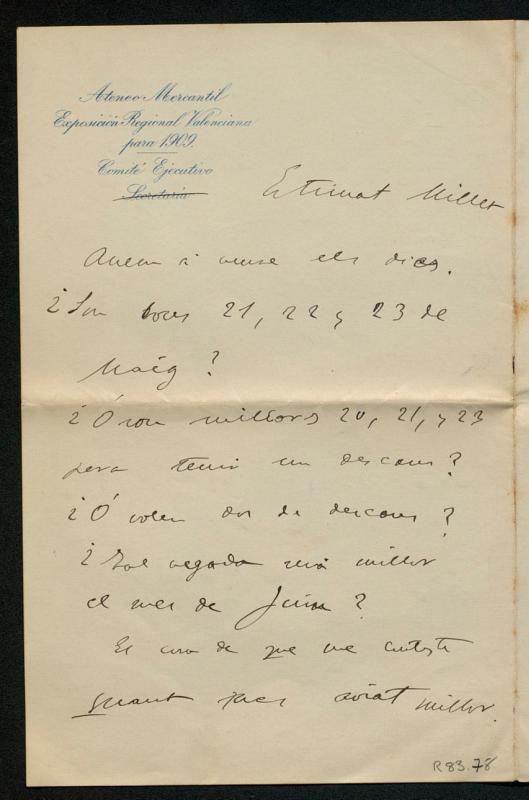 Ateneo Mercantil
Exposición Regional Valenciana
para 1909.
Comité Ejecutivo
Secretaria
Estimat Millet
Anem á veure els dies.
¿Son bons 21, 22 y 23 de
Maig?
¿Ó son millors 20, 21, y 23
pera tenir un descans?
¿Ó volen dos de descans?
¿Tal vegada será millor
el mes de Juin?
Es cosa de que me conteste
quant mes aviat millor.
R 83.78